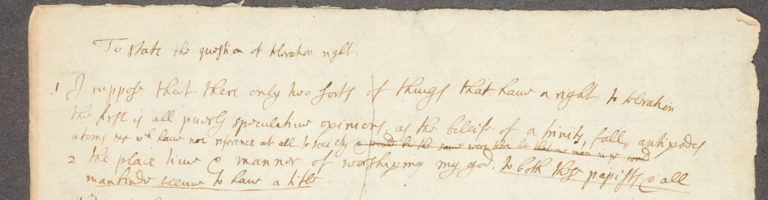 To state the question of toleration right.
1 I suppose that there only two sorts of things that have a right to toleration
The first is all purely speculative opinions as the beleife of a trinity, fall, antipodes
atoms &c wch have noe reference at all to society
2 the place time & manner of worshiping my god. to both thes papists & all
mankinde seeme to have a title